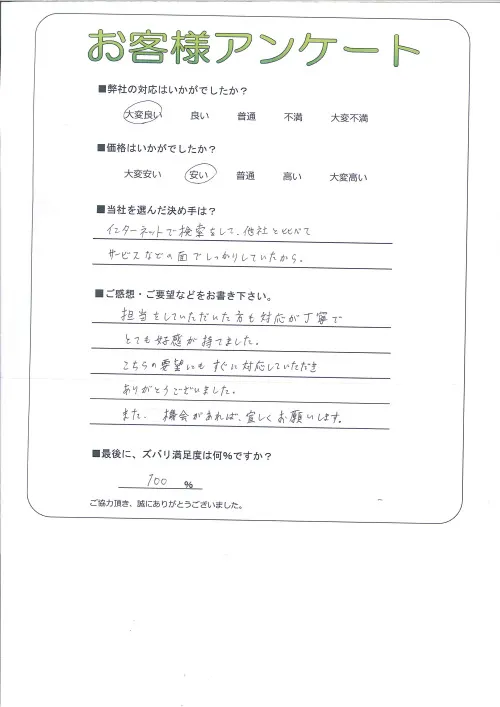 お客様アンケート
■弊社の対応はいかがでしたか？
大変良い 良い 普通 不満 大変不満
■価格はいかがでしたか？
大変安い 安い 普通 高い 大変高い
■当社を選んだ決め手は？
インターネットで検索をして、他社と比べて
サービスなどの面でしっかりしていたから。
■ご感想・ご要望などをお書き下さい。
担当をしていただいた方も対応が丁寧で
とても好感が持てました。
こちらの要望にもすぐに対応していただき
ありがとうございました。
また、機会があれば、宜しくお願いします。
■最後に、ズバリ満足度は何％ですか？
100 %
ご協力頂き、誠にありがとうございました。